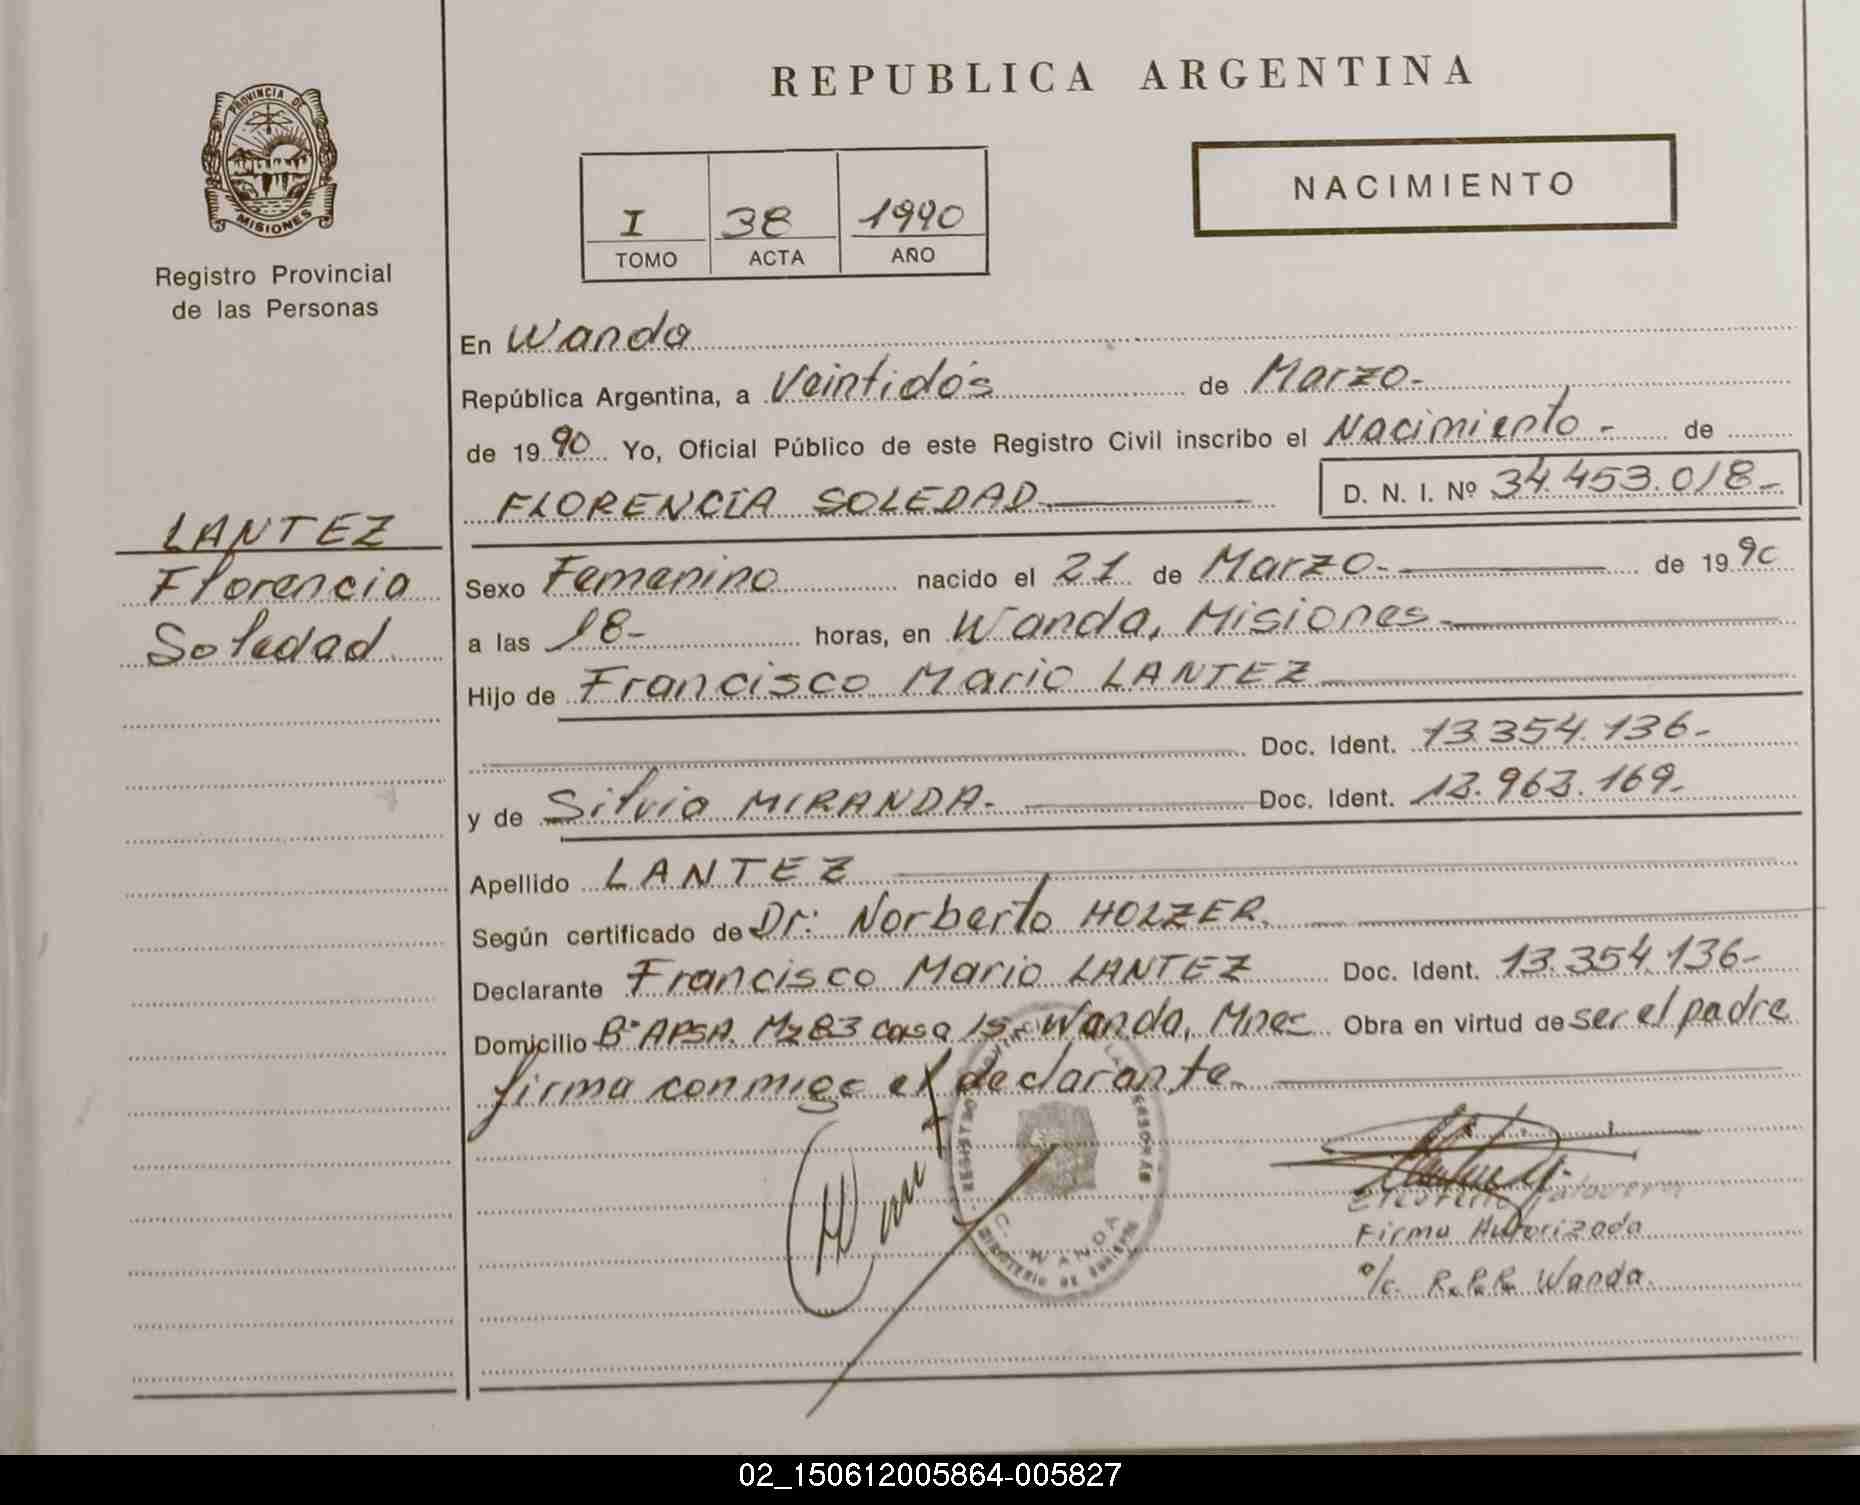 REPUBLICA ARGENTINA
PROVINCIA DE
MISIONES
Registro Provincial
de las Personas
I 38 1990
TOMO ACTA AÑO
NACIMIENTO
En Wanda
República Argentina, a Veintidós de Marzo-
de 1990 Yo, Oficial Público de este Registro Civil inscribo el Nacimiento - de
FLORENCIA SOLEDAD D. N. I. Nº 34.453.018-
LANTEZ
Florencia
Soledad
Sexo Femenino nacido el 21 de Marzo- de 1990
a las 18- horas, en Wanda, Misiones-
Hijo de Francisco Mario LANTEZ
Doc. Ident. 13.354.136-
y de Silvia MIRANDA- Doc. Ident. 13.963.169-
Apellido LANTEZ
Según certificado de Dr: Norberto HOLZER.
Declarante Francisco Mario LANTEZ Doc. Ident. 13.354.136-
Domicilio Bº APSA. Mz 83 casa 15- Wanda, Mnes Obra en virtud de ser el padre
firma conmigo el declarante-
WANDA
Firma Autorizada
a/c. R.P.P. Wanda.
02_150612005864-005827